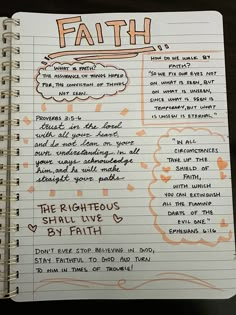 FAITH
WHAT IS FAITH?
THE ASSURANCE OF THINGS HOPED
FOR, THE CONVICTION OF THINGS
NOT SEEN.
HOW DO WE WALK BY
FAITH?
"SO WE FIX OUR EYES NOT
ON WHAT IS SEEN, BUT
ON WHAT IS UNSEEN,
SINCE WHAT IS SEEN IS
TEMPORARY, BUT WHAT
IS UNSEEN IS ETERNAL."
PROVERBS 3:5-6
trust in the lord
with all your heart
and do not lean on your
own understanding in all
your ways acknowledge
him, and he will make
straight your paths
"IN ALL
CIRCUMSTANCES
TAKE UP THE
SHIELD OF
FAITH,
WITH WHICH
YOU CAN EXTINGUISH
ALL THE FLAMING
DARTS OF THE
EVIL ONE."
EPHESIANS 6:16
THE RIGHTEOUS
SHALL LIVE
BY FAITH
DON'T EVER STOP BELIEVING IN GOD,
STAY FAITHFUL TO GOD AND TURN
TO HIM IN TIMES OF TROUBLE!